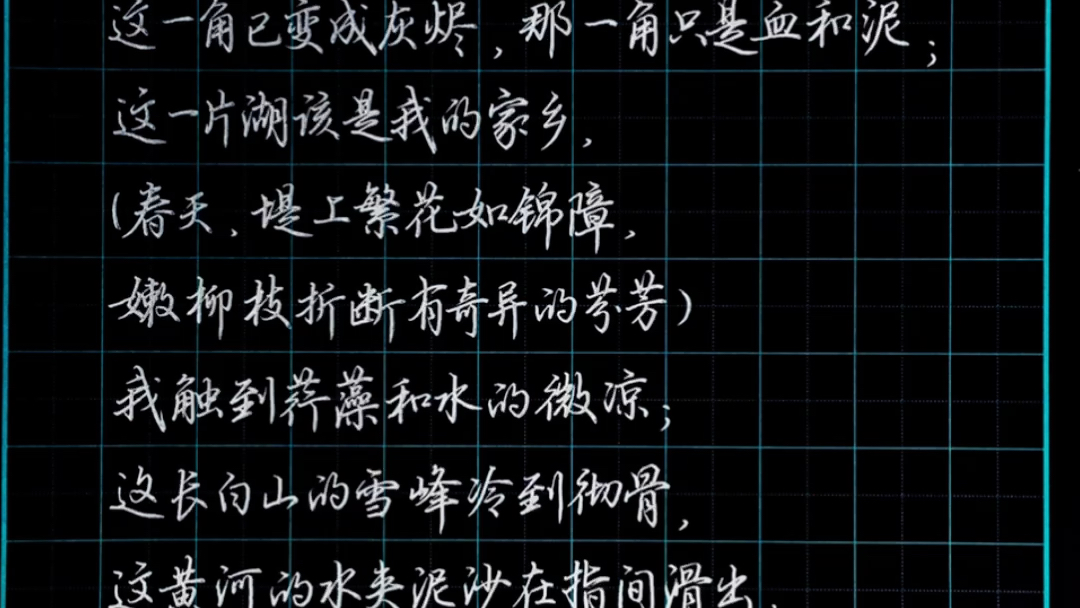 这一角已变成灰烬，那一角只是血和泥；
这一片湖该是我的家乡，
(春天，堤上繁花如锦障，
嫩柳枝折断有奇异的芬芳)
我触到荇藻和水的微凉；
这长白山的雪峰冷到彻骨，
这黄河的水夹泥沙在指间滑出，